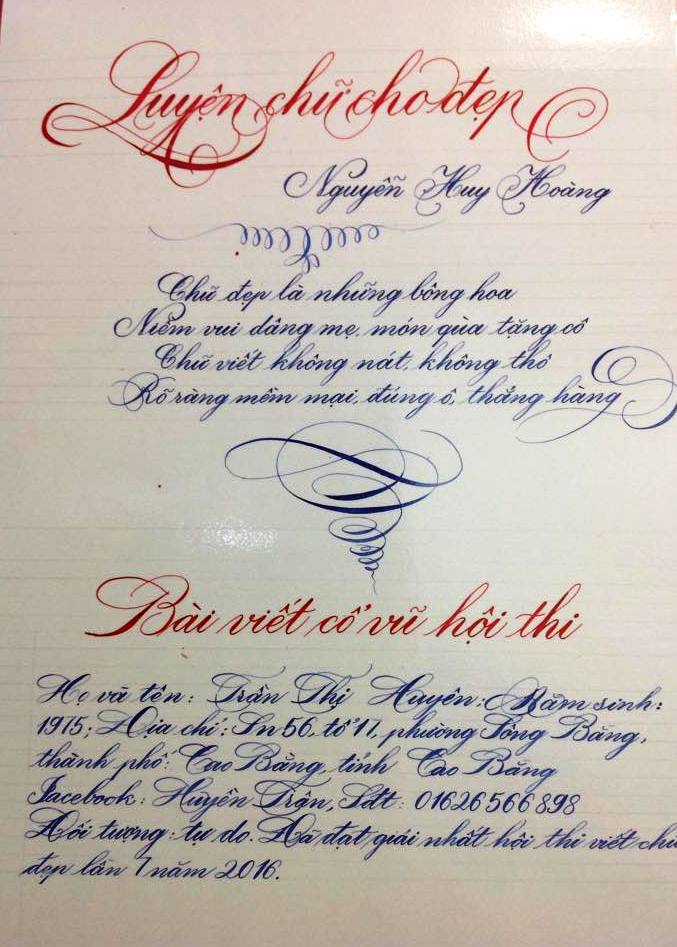 Luyện chữ cho đẹp
Nguyễn Huy Hoàng
Chữ đẹp là những bông hoa
Niềm vui dâng mẹ, món qùa tặng cô
Chữ viết không nát, không thô
Rõ ràng mềm mại, đúng ô, thẳng hàng
Bài viết cổ vũ hội thi
Họ và tên: Trần Thị Huyên; Năm sinh:
1975; Địa chỉ: Sn 56, tổ 17, phường Sông Bằng,
thành phố: Cao Bằng, tỉnh Cao Bằng
Facebook: Huyên Trần, Sđt: 01626566898
Đối tượng: tự do. Đã đạt giải nhất hội thi viết chữ
đẹp lần 7 năm 2016.